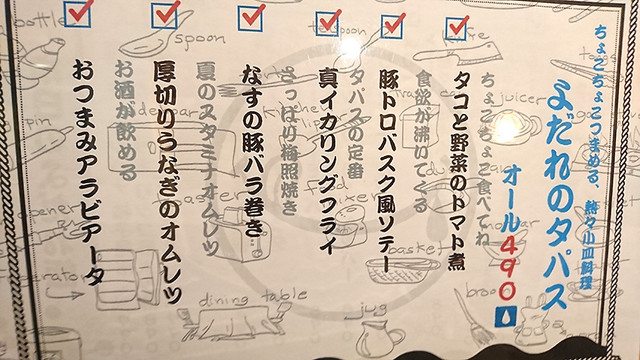 ちょこちょこつまめる、熱々小皿料理
よだれのタパス
オール490
ちょこちょこ食べてね
タコと野菜のトマト煮
食欲が沸いてくる
豚トロバスク風ソテー
タパスの定番
真イカリングフライ
さっぱり梅照焼き
なすの豚バラ巻き
夏のスタミナオムレツ
厚切りうなぎのオムレツ
お酒が飲める
おつまみアラビアータ
bottle
spoon
teaspoon
knife
juicer
pin
mixer
opener
basket
dining table
jug